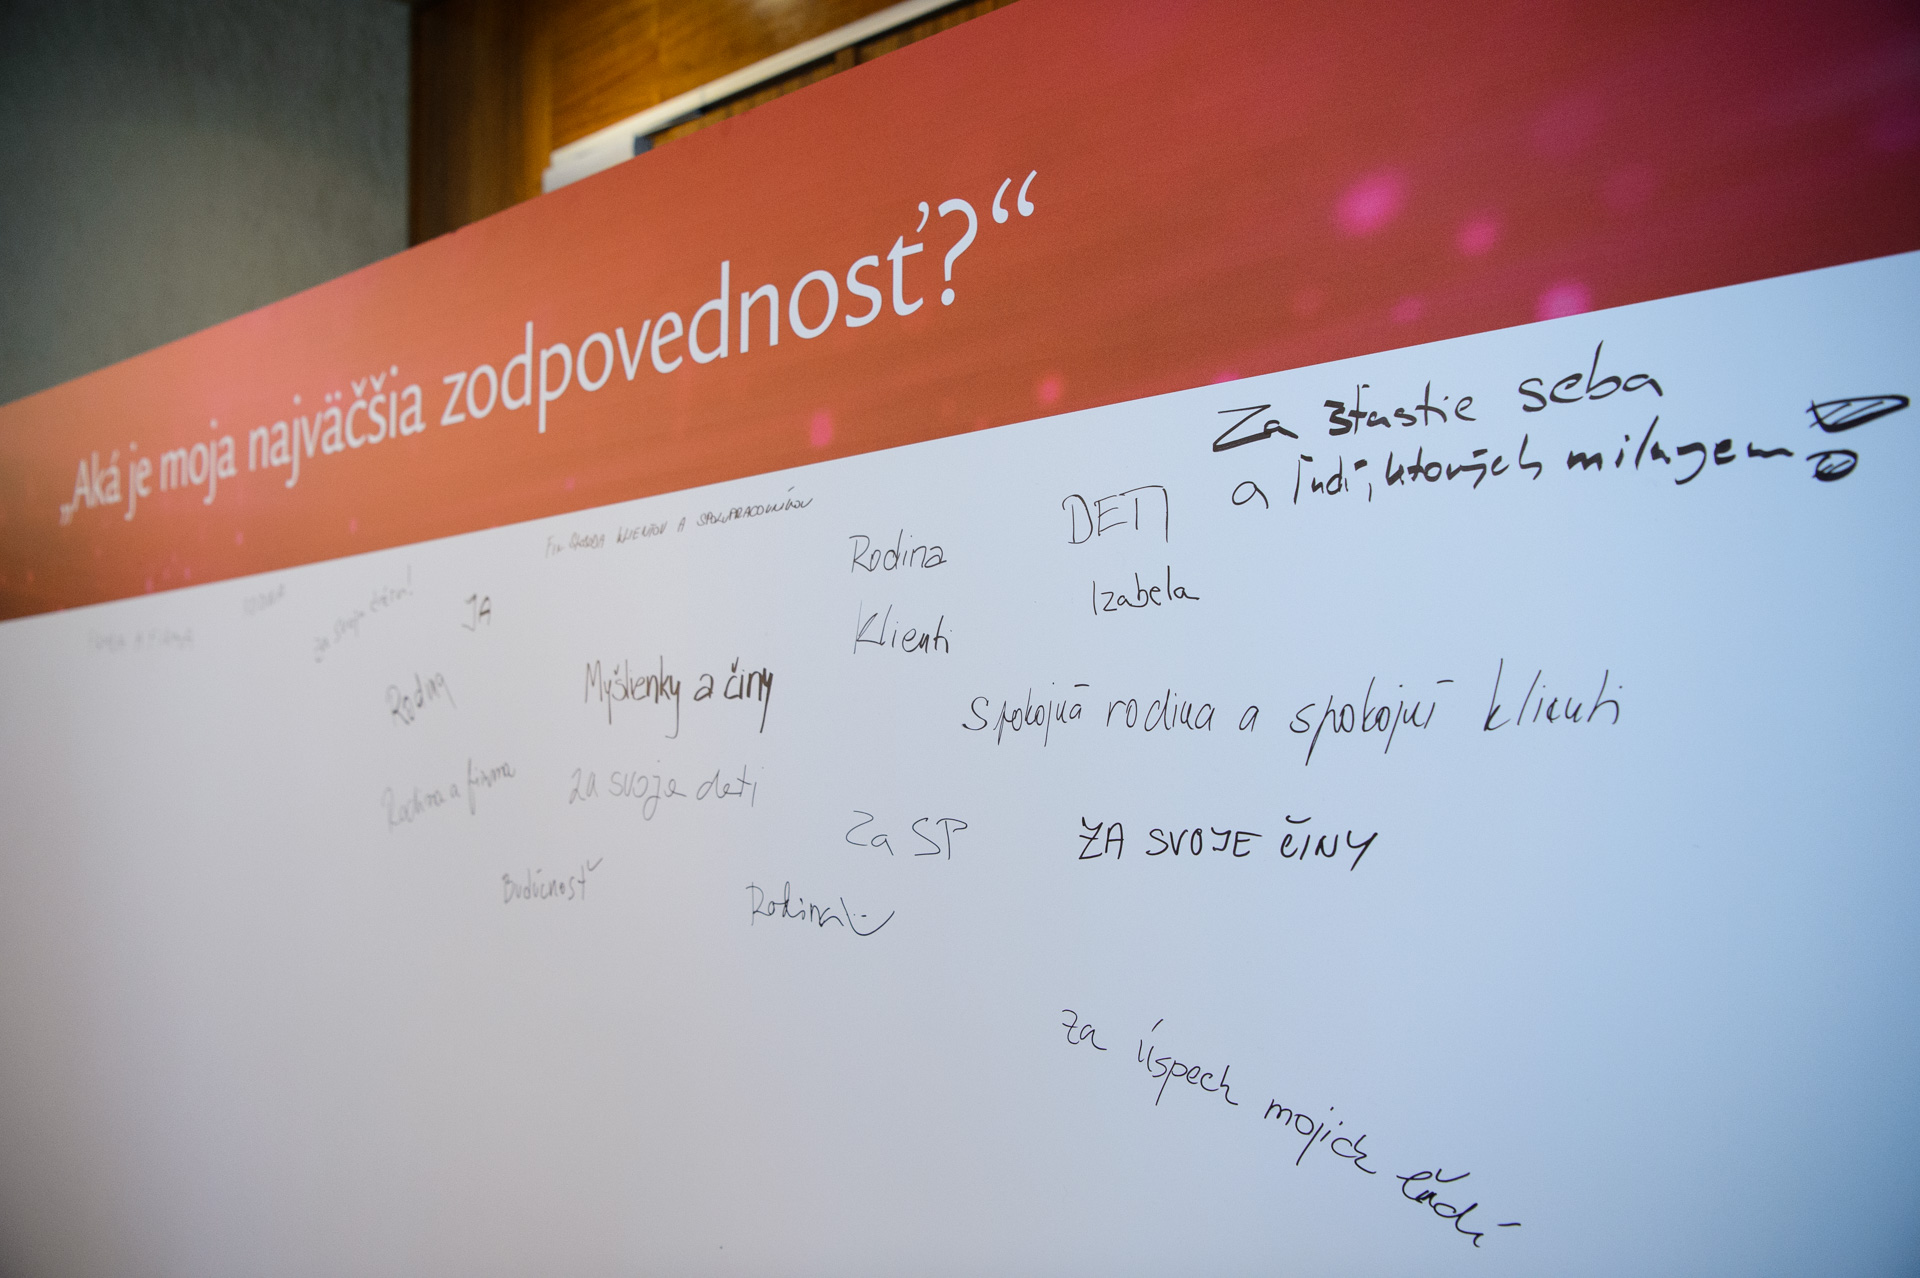 „Aká je moja najväčšia zodpovednosť?“
Za šťastie seba
a ľudí, ktorých milujem!
KLIENTOV A SPOLUPRACOVNÍKOV
Rodina
DETI
Izabela
JA
za svoje činy!
Klienti
Rodina
Myšlienky a činy
Spokojná rodina a spokojní klienti
Rodina a firma
za svoje deti
Za SP
ZA SVOJE ČINY
Budúcnosť
Rodina
za úspech mojich ľudí